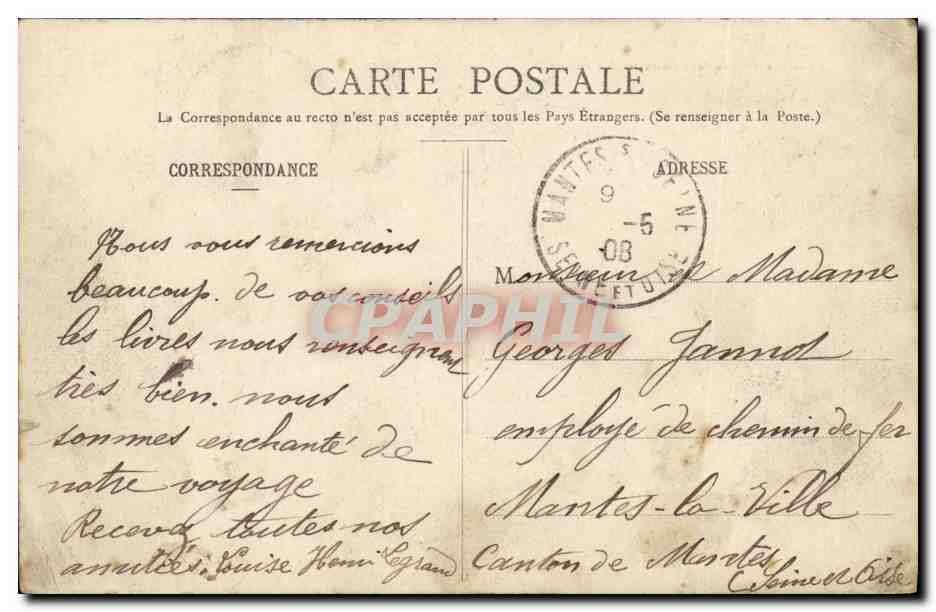 CARTE POSTALE
La Correspondance au recto n'est pas acceptée par tous les Pays Étrangers. (Se renseigner à la Poste.)
CORRESPONDANCE
Nous vous remercions
beaucoup. de vos conseils
les livres nous renseignent
très bien. nous
sommes enchanté de
notre voyage
Recevez toutes nos
amitiés. Louise Henri Legrand
ADRESSE
MANTES S SEINE
9 -5
08
SEINE ET OISE
Monsieur et Madame
Georges Jannot
employé de chemin de fer
Mantes-la-Ville
Canton de Mantes
(Seine et Oise
CPAPHIL